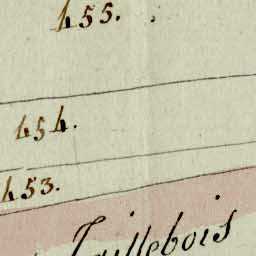 455.
454.
453.
Taillebois